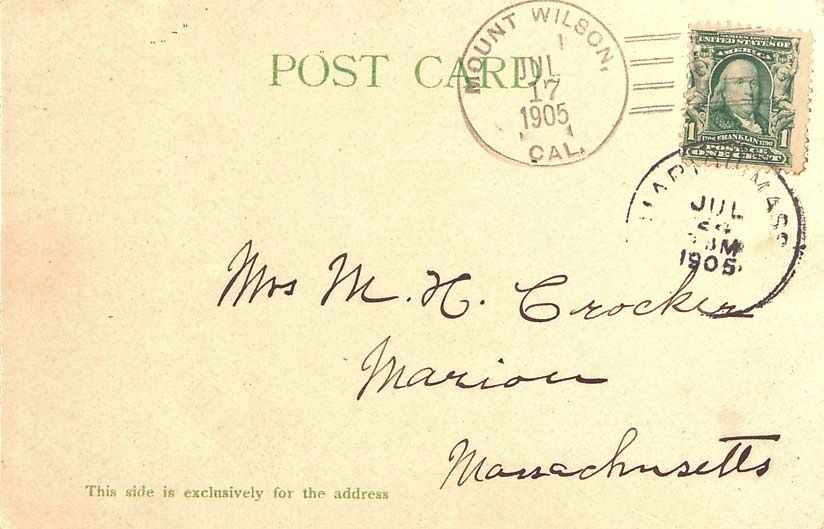 POST CARD
MOUNT WILSON,
JUL
17
1905
CAL.
SERIES 1902
UNITED STATES OF
AMERICA
1 FRANKLIN 1
POSTAGE
ONE CENT
MASS
JUL
24
1905
Mrs M. H. Crocker
Marion
Massachusetts
This side is exclusively for the address